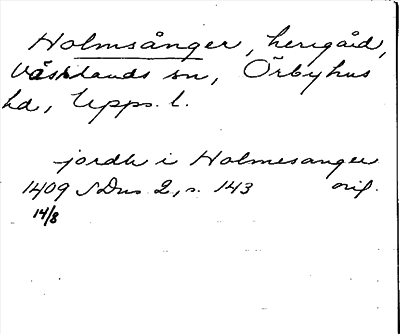 Holmsånger, herrgård,
Västlands sn, Örbyhus
hd, Upps. l.
jordh i Holmesanger
1409 SDns 2, s. 143 orig.
14/8